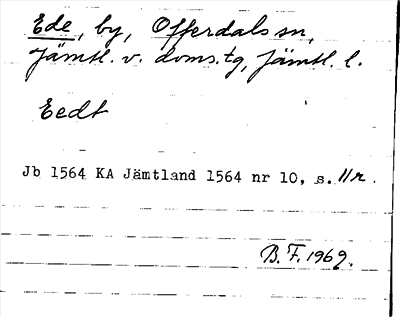 Ede, by, Offerdals sn,
Jämtl. v. doms.tg, Jämtl. l.
Eedt
Jb 1564 KA Jämtland 1564 nr 10, s. 11r.
B.F. 1969.